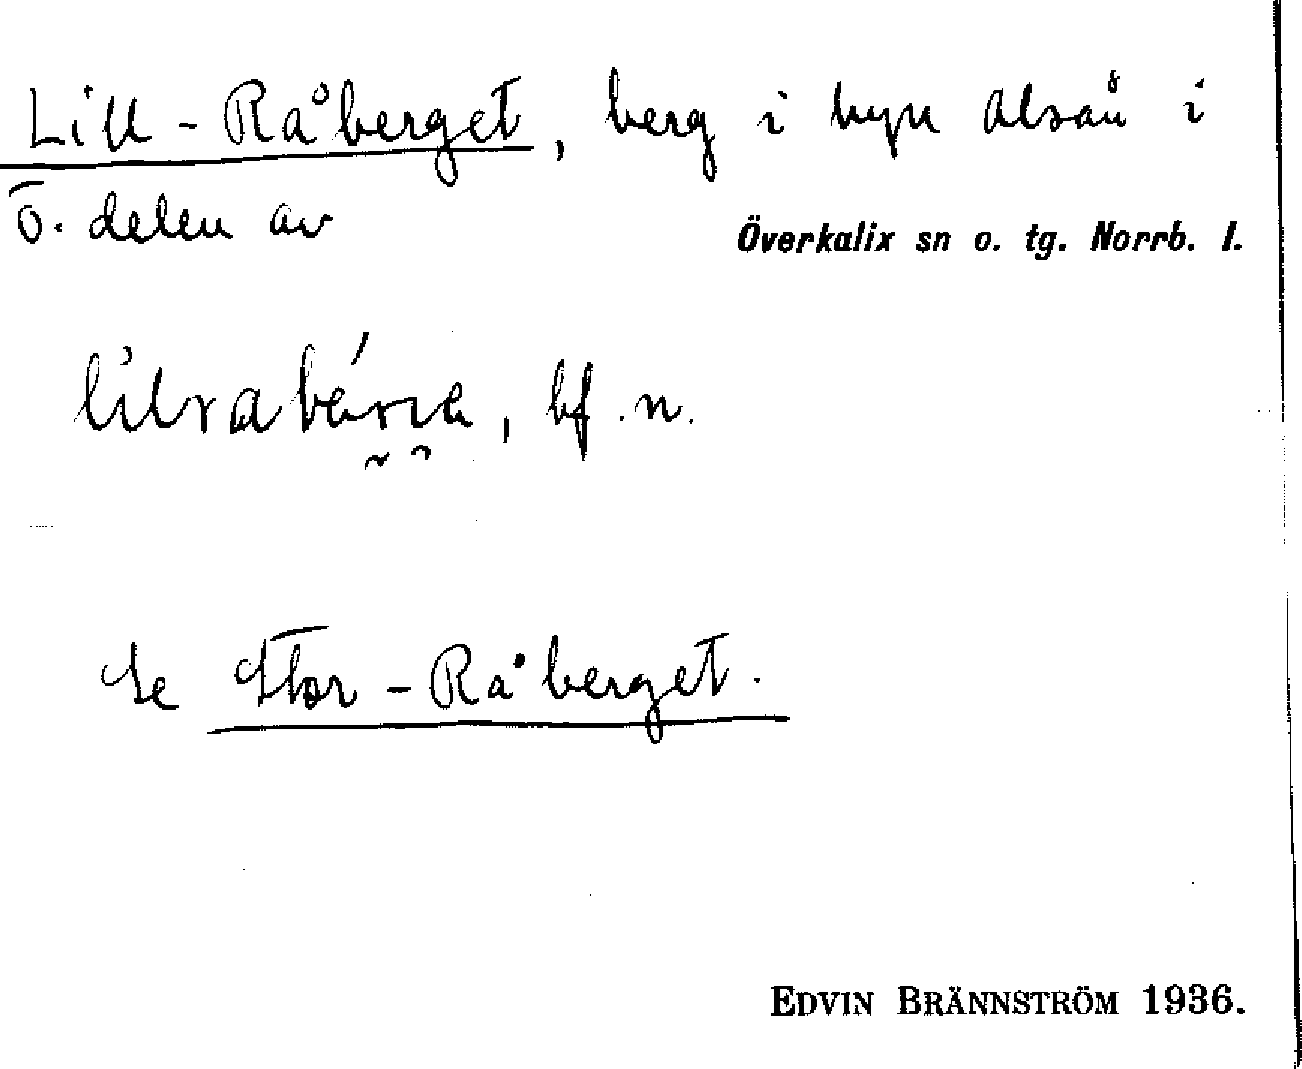 Lill-Råberget, berg i byn Alsån i
ö. delen av
Överkalix sn o. tg. Norrb. l.
bf. n.
Se Stor-Råberget.
EDVIN BRÄNNSTRÖM 1936.